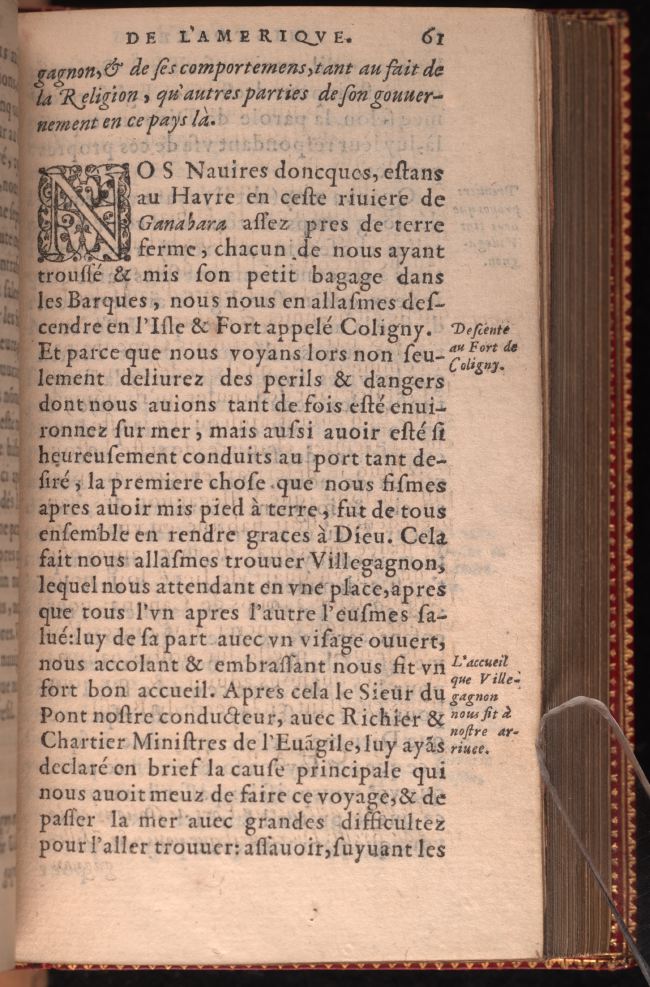 DE L'AMERIQVE. 61
gagnon, & de ſes comportemens, tant au fait de
la Religion, qu'autres parties de ſon gouuer-
nement en ce pays la.
NOS Nauires doncques, eſtans
au Havre en ceſte riuiere de
Ganabara aſſez pres de terre
ferme, chacun de nous ayant
trouſſé & mis ſon petit bagage dans
les Barques, nous nous en allaſmes deſ-
cendre en l'Iſle & Fort appelé Coligny.
Deſcente
au Fort de
Coligny.
Et parce que nous voyans lors non ſeu-
lement deliurez des perils & dangers
dont nous auions tant de fois eſté enui-
ronnez ſur mer, mais auſsi auoir eſté ſi
heureuſement conduits au port tant de-
ſiré, la premiere choſe que nous fiſmes
apres auoir mis pied à terre, fut de tous
enſemble en rendre graces à Dieu. Cela
fait nous allaſmes trouuer Villegagnon,
lequel nous attendant en vne place, apres
que tous l'vn apres l'autre l'euſmes ſa-
lué: luy de ſa part auec vn viſage ouuert,
nous accolant & embraſſant nous fit vn
fort bon accueil. Apres cela le Sieur du
Pont noſtre conducteur, auec Richier &
Chartier Miniſtres de l'Euãgile, luy ayãs
L'accueil
que Ville-
gagnon
nous fit à
noſtre ar-
riuee.
declaré en brief la cauſe principale qui
nous auoit meuz de faire ce voyage, & de
paſſer la mer auec grandes difficultez
pour l'aller trouuer: aſſauoir, ſuyuant les